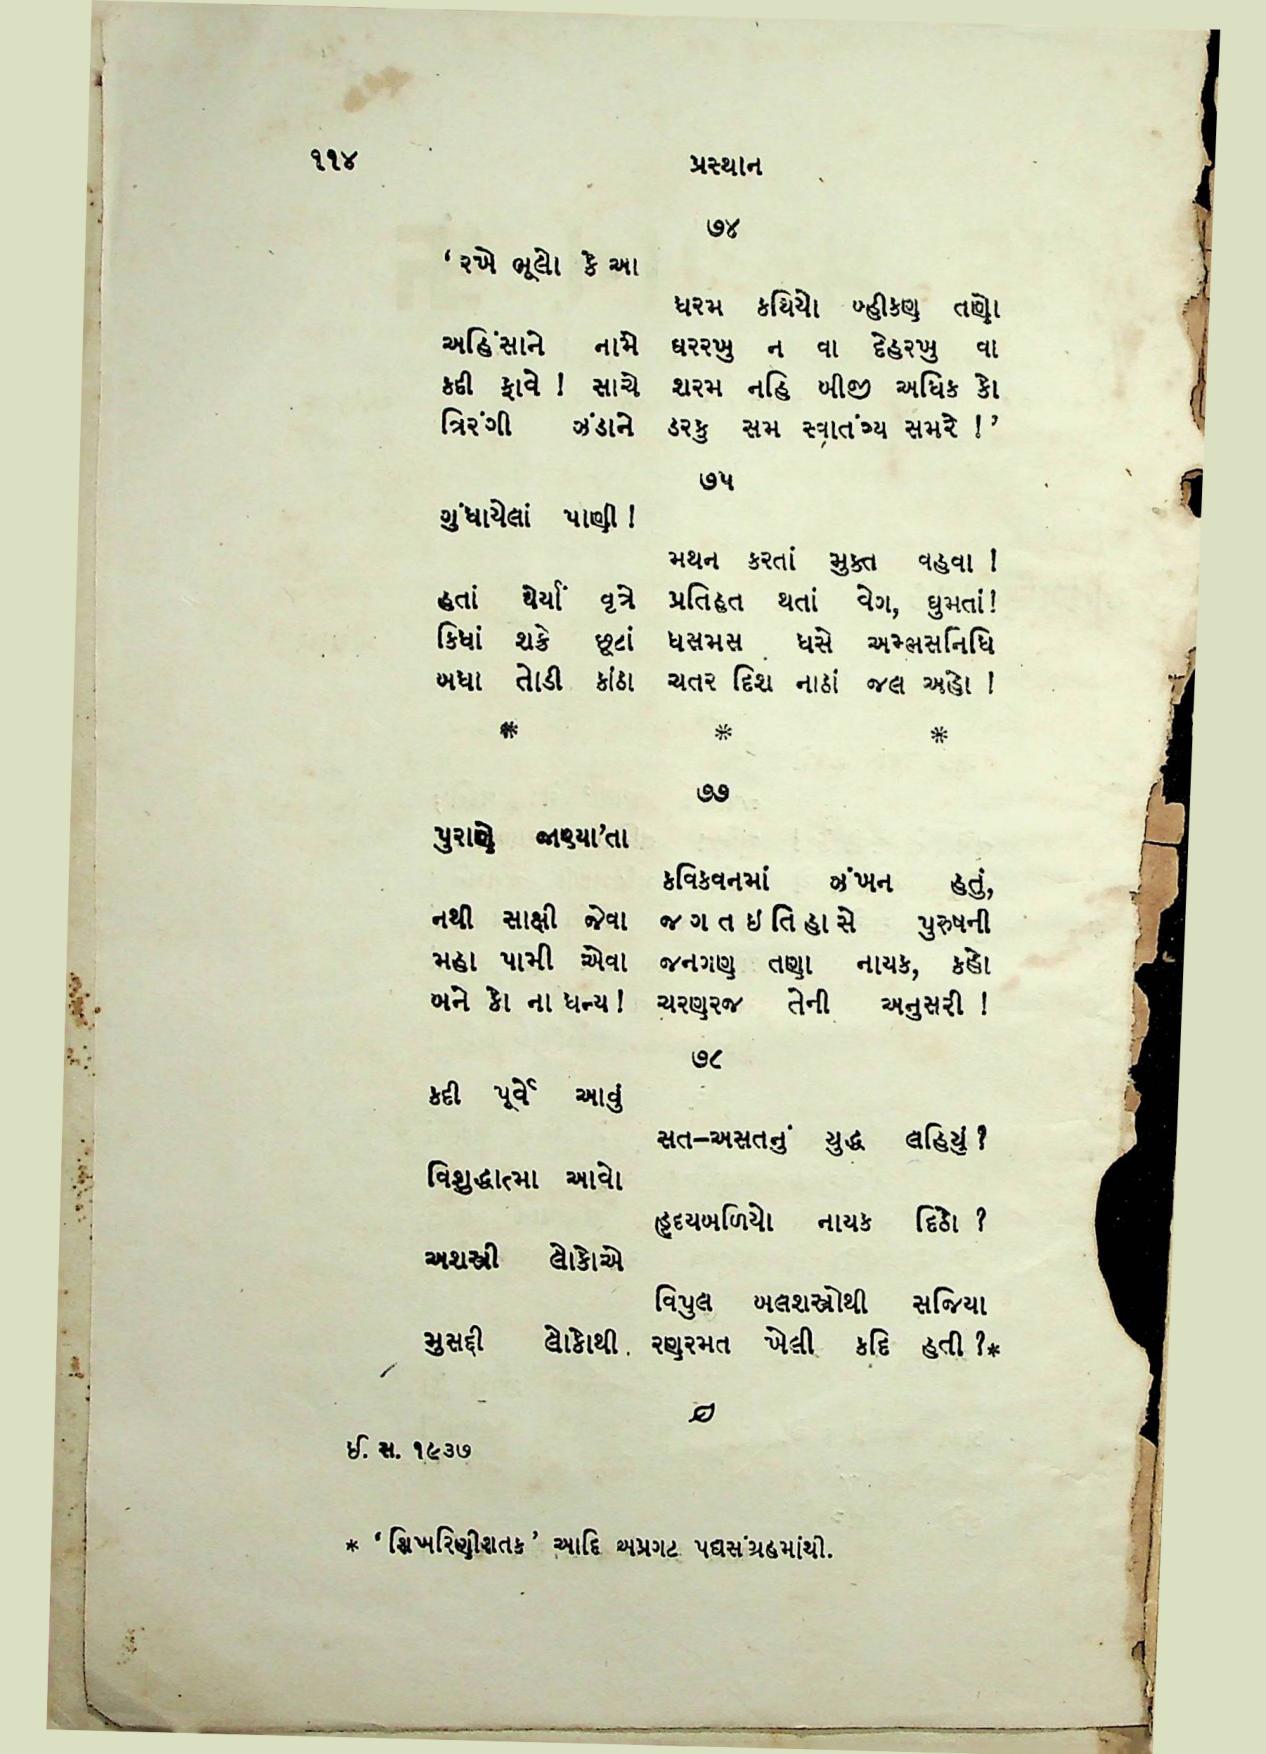 ૧૧૪ પ્રસ્થાન
૭૪
‘રખે ભૂલો કે આ
ધરમ કથિયો બ્હીકણ તણો
અહિંસાને નામે ઘરરખુ ન વા દેહરખુ વા
કદી ફાવે ! સાચે શરમ નહિ બીજી અધિક કો
ત્રિરંગી ઝંડાને ડરકુ સમ સ્વાતંત્ર્ય સમરે !’
૭૫
ગુંધાયેલાં પાણી !
મથન કરતાં મુક્ત વહવા !
હતાં થેર્યાં વૃત્રે પ્રતિહત થતાં વેગ, ઘુમતાં!
કિધાં શકે છૂટાં ધસમસ ધસે અમ્ભસનિધિ
બધા તોડી કાંઠા ચતર દિશ નાઠાં જલ અહો !
* * *
૭૭
પુરાણે જાણ્યા’તા
કવિકવનમાં ઝંખન હતું,
નથી સાક્ષી જેવા જગતઇતિહાસે પુરુષની
મહા પામી એવા જનગણ તણા નાયક, કહો
બને કો ના ધન્ય! ચરણરજ તેની અનુસરી !
૭૮
કદી પૂર્વે આવું
સત–અસતનું યુદ્ધ લહિયું ?
વિશુદ્ધાત્મા આવો
હૃદયબળિયો નાયક દિઠો ?
અશસ્ત્રી લોકોએ
વિપુલ બલશસ્ત્રોથી સજિયા
મુસદ્દી લોકોથી રણરમત ખેલી કદિ હતી ?*
ઈ. સ. ૧૯૩૭
* ‘શિખરિણીશતક’ આદિ અપ્રગટ પદ્યસંગ્રહમાંથી.